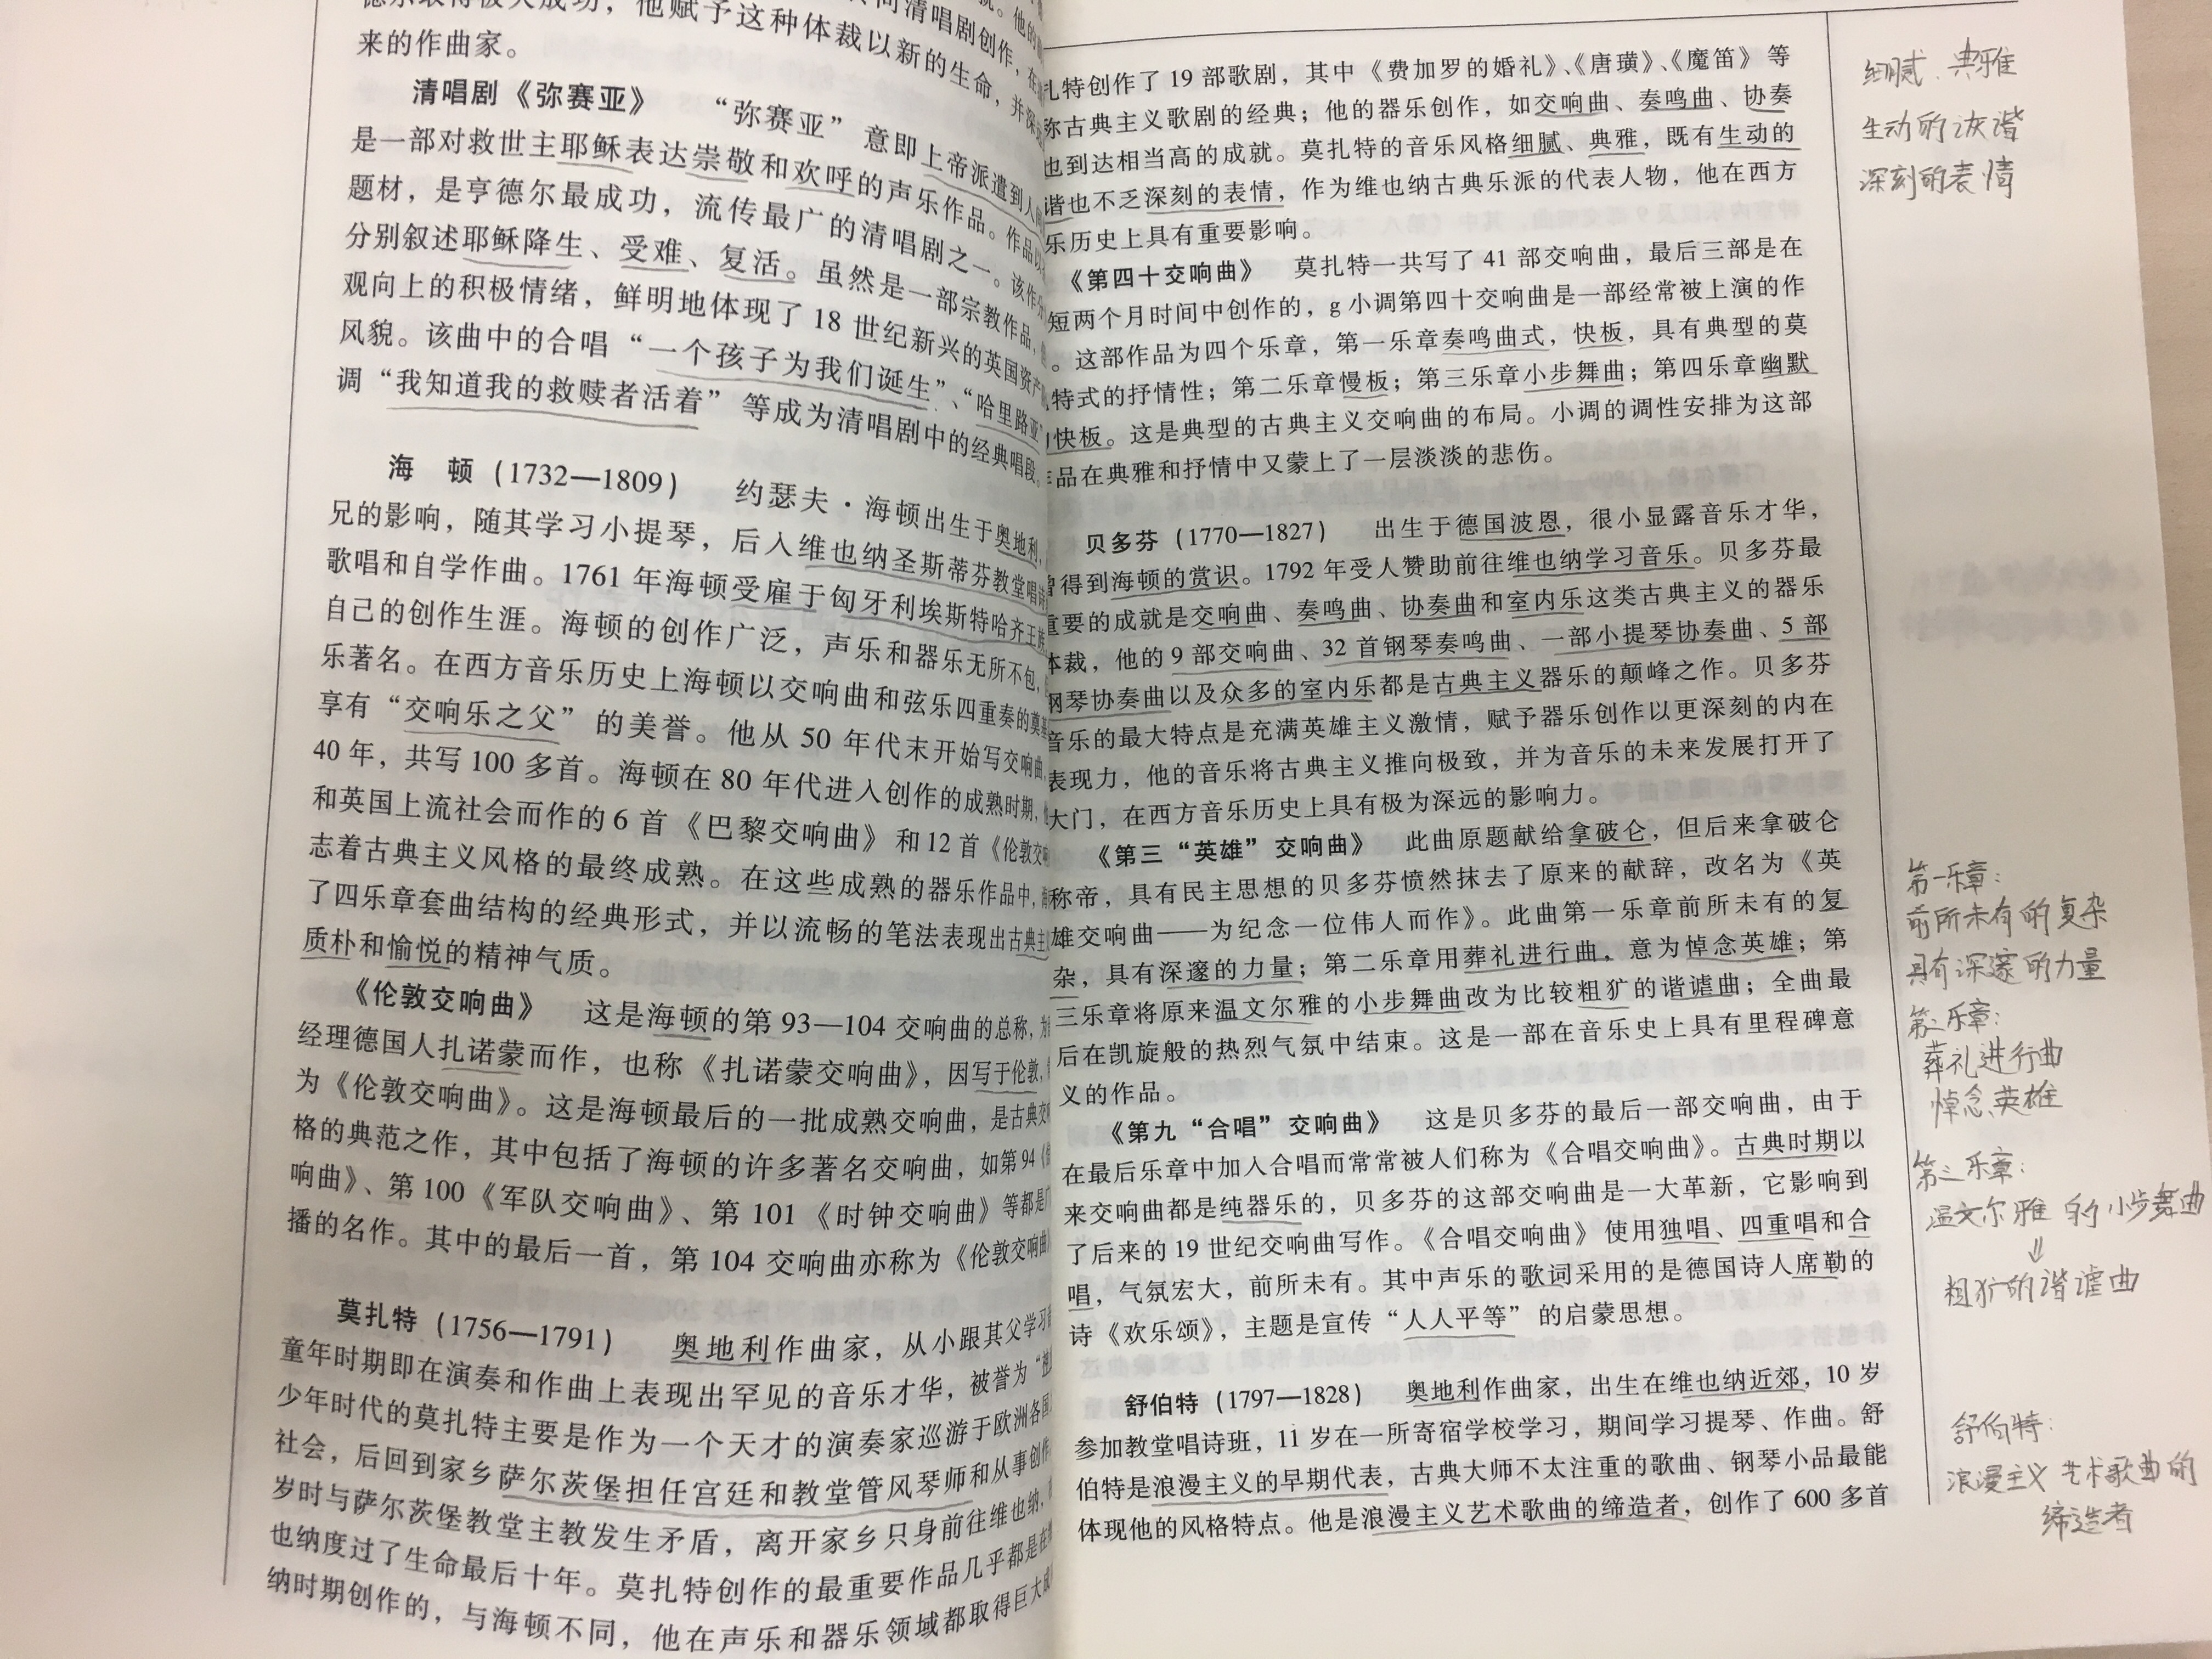 来的作曲家。
清唱剧《弥赛亚》 “弥赛亚”意即上帝派遣到人间
是一部对救世主耶稣表达崇敬和欢呼的声乐作品。作品以
题材，是亨德尔最成功，流传最广的清唱剧之一。该作分
分别叙述耶稣降生、受难、复活。虽然是一部宗教作品，
观向上的积极情绪，鲜明地体现了 18 世纪新兴的英国资产
风貌。该曲中的合唱“一个孩子为我们诞生”、“哈里路亚”
调“我知道我的救赎者活着”等成为清唱剧中的经典唱段。
海 顿（1732—1809） 约瑟夫·海顿出生于奥地利，
兄的影响，随其学习小提琴，后入维也纳圣斯蒂芬教堂唱诗
歌唱和自学作曲。1761 年海顿受雇于匈牙利埃斯特哈齐王族
自己的创作生涯。海顿的创作广泛，声乐和器乐无所不包，
乐著名。在西方音乐历史上海顿以交响曲和弦乐四重奏的奠基
享有“交响乐之父”的美誉。他从 50 年代末开始写交响曲，
40 年，共写 100 多首。海顿在 80 年代进入创作的成熟时期，
和英国上流社会而作的 6 首《巴黎交响曲》和 12 首《伦敦交响
志着古典主义风格的最终成熟。在这些成熟的器乐作品中，
了四乐章套曲结构的经典形式，并以流畅的笔法表现出古典主
质朴和愉悦的精神气质。
《伦敦交响曲》 这是海顿的第 93—104 交响曲的总称，
经理德国人扎诺蒙而作，也称《扎诺蒙交响曲》，因写于伦敦，
为《伦敦交响曲》。这是海顿最后的一批成熟交响曲，是古典交
格的典范之作，其中包括了海顿的许多著名交响曲，如第 94
响曲》、第 100《军队交响曲》、第 101《时钟交响曲》等都是
播的名作。其中的最后一首，第 104 交响曲亦称为《伦敦交响曲
莫扎特（1756—1791） 奥地利作曲家，从小跟其父学习
童年时期即在演奏和作曲上表现出罕见的音乐才华，被誉为“
少年时代的莫扎特主要是作为一个天才的演奏家巡游于欧洲各国
社会，后回到家乡萨尔茨堡担任宫廷和教堂管风琴师和从事创作
岁时与萨尔茨堡教堂主教发生矛盾，离开家乡只身前往维也纳，
也纳度过了生命最后十年。莫扎特创作的最重要作品几乎都是在
纳时期创作的，与海顿不同，他在声乐和器乐领域都取得巨大成
扎特创作了 19 部歌剧，其中《费加罗的婚礼》、《唐璜》、《魔笛》等
称古典主义歌剧的经典；他的器乐创作，如交响曲、奏鸣曲、协奏
也到达相当高的成就。莫扎特的音乐风格细腻、典雅，既有生动的
谐也不乏深刻的表情，作为维也纳古典乐派的代表人物，他在西方
乐历史上具有重要影响。
《第四十交响曲》 莫扎特一共写了 41 部交响曲，最后三部是在
短两个月时间中创作的，g 小调第四十交响曲是一部经常被上演的作
。这部作品为四个乐章，第一乐章奏鸣曲式，快板，具有典型的莫
特式的抒情性；第二乐章慢板；第三乐章小步舞曲；第四乐章幽默
快板。这是典型的古典主义交响曲的布局。小调的调性安排为这部
品在典雅和抒情中又蒙上了一层淡淡的悲伤。
贝多芬（1770—1827） 出生于德国波恩，很小显露音乐才华，
曾得到海顿的赏识。1792 年受人赞助前往维也纳学习音乐。贝多芬最
重要的成就是交响曲、奏鸣曲、协奏曲和室内乐这类古典主义的器乐
体裁，他的 9 部交响曲、32 首钢琴奏鸣曲、一部小提琴协奏曲、5 部
钢琴协奏曲以及众多的室内乐都是古典主义器乐的颠峰之作。贝多芬
音乐的最大特点是充满英雄主义激情，赋予器乐创作以更深刻的内在
表现力，他的音乐将古典主义推向极致，并为音乐的未来发展打开了
大门，在西方音乐历史上具有极为深远的影响力。
《第三“英雄”交响曲》 此曲原题献给拿破仑，但后来拿破仑
称帝，具有民主思想的贝多芬愤然抹去了原来的献辞，改名为《英
雄交响曲——为纪念一位伟人而作》。此曲第一乐章前所未有的复
杂，具有深邃的力量；第二乐章用葬礼进行曲，意为悼念英雄；第
三乐章将原来温文尔雅的小步舞曲改为比较粗犷的谐谑曲；全曲最
后在凯旋般的热烈气氛中结束。这是一部在音乐史上具有里程碑意
义的作品。
《第九“合唱”交响曲》 这是贝多芬的最后一部交响曲，由于
在最后乐章中加入合唱而常常被人们称为《合唱交响曲》。古典时期以
来交响曲都是纯器乐的，贝多芬的这部交响曲是一大革新，它影响到
了后来的 19 世纪交响曲写作。《合唱交响曲》使用独唱、四重唱和合
唱，气氛宏大，前所未有。其中声乐的歌词采用的是德国诗人席勒的
诗《欢乐颂》，主题是宣传“人人平等”的启蒙思想。
舒伯特（1797—1828） 奥地利作曲家，出生在维也纳近郊，10 岁
参加教堂唱诗班，11 岁在一所寄宿学校学习，期间学习提琴、作曲。舒
伯特是浪漫主义的早期代表，古典大师不太注重的歌曲、钢琴小品最能
体现他的风格特点。他是浪漫主义艺术歌曲的缔造者，创作了 600 多首
细腻、典雅
生动的诙谐
深刻的表情
第一乐章：
前所未有的复杂
具有深邃的力量
第二乐章：
葬礼进行曲
悼念英雄
第三乐章：
温文尔雅的小步舞曲
⇓
粗犷的谐谑曲
舒伯特：
浪漫主义艺术歌曲的
缔造者